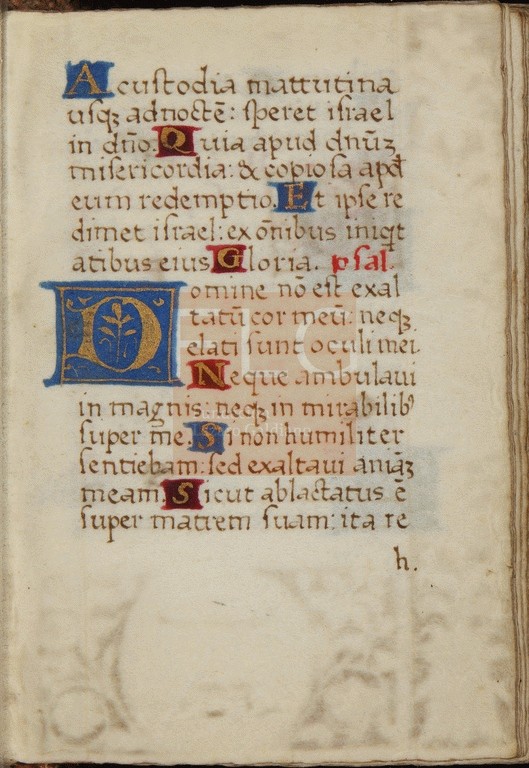 A custodia mattutina
usqꝫ ad noctē: speret israel
in dño. Quia apud dnūꝫ
misericordia: & copiosa apđ
eum redemptio. Et ipse re
dimet israel: ex oĩnibus iniqt
atibus eius Gloria. psal.
Domine nõ est exal
tatū cor meū: neqꝫ
elati sunt oculi mei.
Neque ambulaui
in magnis: neqꝫ in mirabilib⁹
super me. Si non humiliter
sentiebam: sed exaltaui aniāꝫ
meam. Sicut ablactatus ē
super matrem suam: ita re
h.